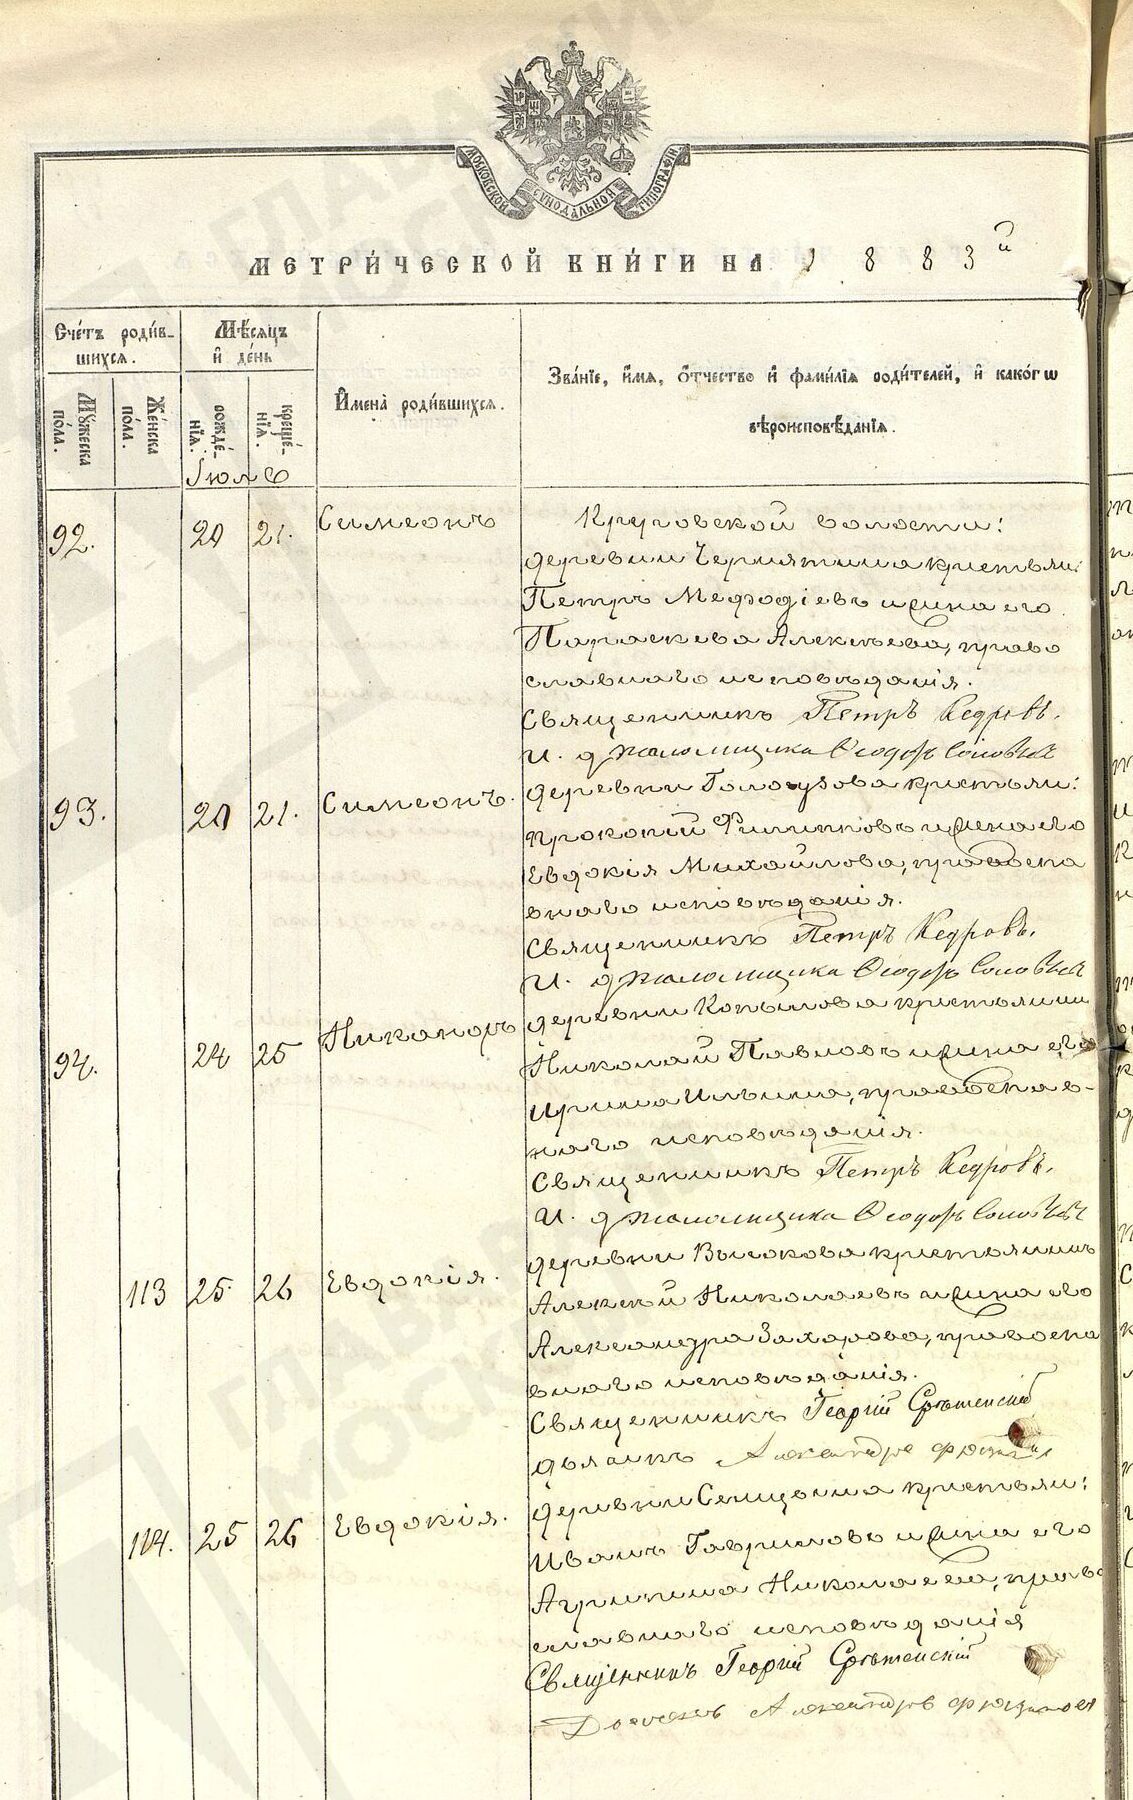 МОСКОВСКОЙ СѴНОДАЛЬНОЙ ТИПОГРАФІИ
МЕТРИ́ЧЕСКОЙ КНИ́ГИ НА 1883й
Сче́тъ роди́в-
шихся.
Мѣ́сяцъ
и҆ де́нь
И҆мена̀ роди́вшихся.
Зва́нїе, и҆́мя, ѻ҆́тчество и҆ фами́лїя роди́телей, и҆ како́гѡ
вѣроисповѣ́данїя.
Мꙋ́жеска
по́ла.
Же́нска
по́ла.
рожде́-
нїя.
креще́-
нїя.
Іюль
92. 20 21. Симеонъ
Круговской волости:
деревни Чернятина крестьян:
Петръ Мефодіевъ и жена его
Параскева Алексѣева, право
славнаго исповѣданія.
Священникъ Петръ Кедровъ.
И. д. псаломщика Ѳеодоръ Соловьев
93. 20 21. Симеонъ.
деревни Голоузова крестьян:
Прокопій Филиповъ и жена его
Евдокія Михайлова, правосла
внаго исповѣданія.
Священникъ Петръ Кедровъ.
И. д. псаломщика Ѳеодоръ Соловьев
94. 24 25 Никаноръ
деревни Копылова крестьянинъ
Николай Павловъ и жена его
Ирина Ильина, православ-
наго исповѣданія.
Священникъ Петръ Кедровъ.
И. д. псаломщика Ѳеодоръ Соловьев
113 25. 26 Евдокія.
деревни Высокова крестьянинъ
Алексѣй Николаевъ и жена его
Александра Захарова, правосла
внаго исповѣданія.
Священникъ Георгій Срѣтенскій
дьякъ Александръ
114. 25 26 Евдокія.
деревни крестьян:
Иванъ Гавриловъ и жена его
Агрипина Николаева, право
славнаго исповѣданія
Священникъ Георгій Срѣтенскій
Александров